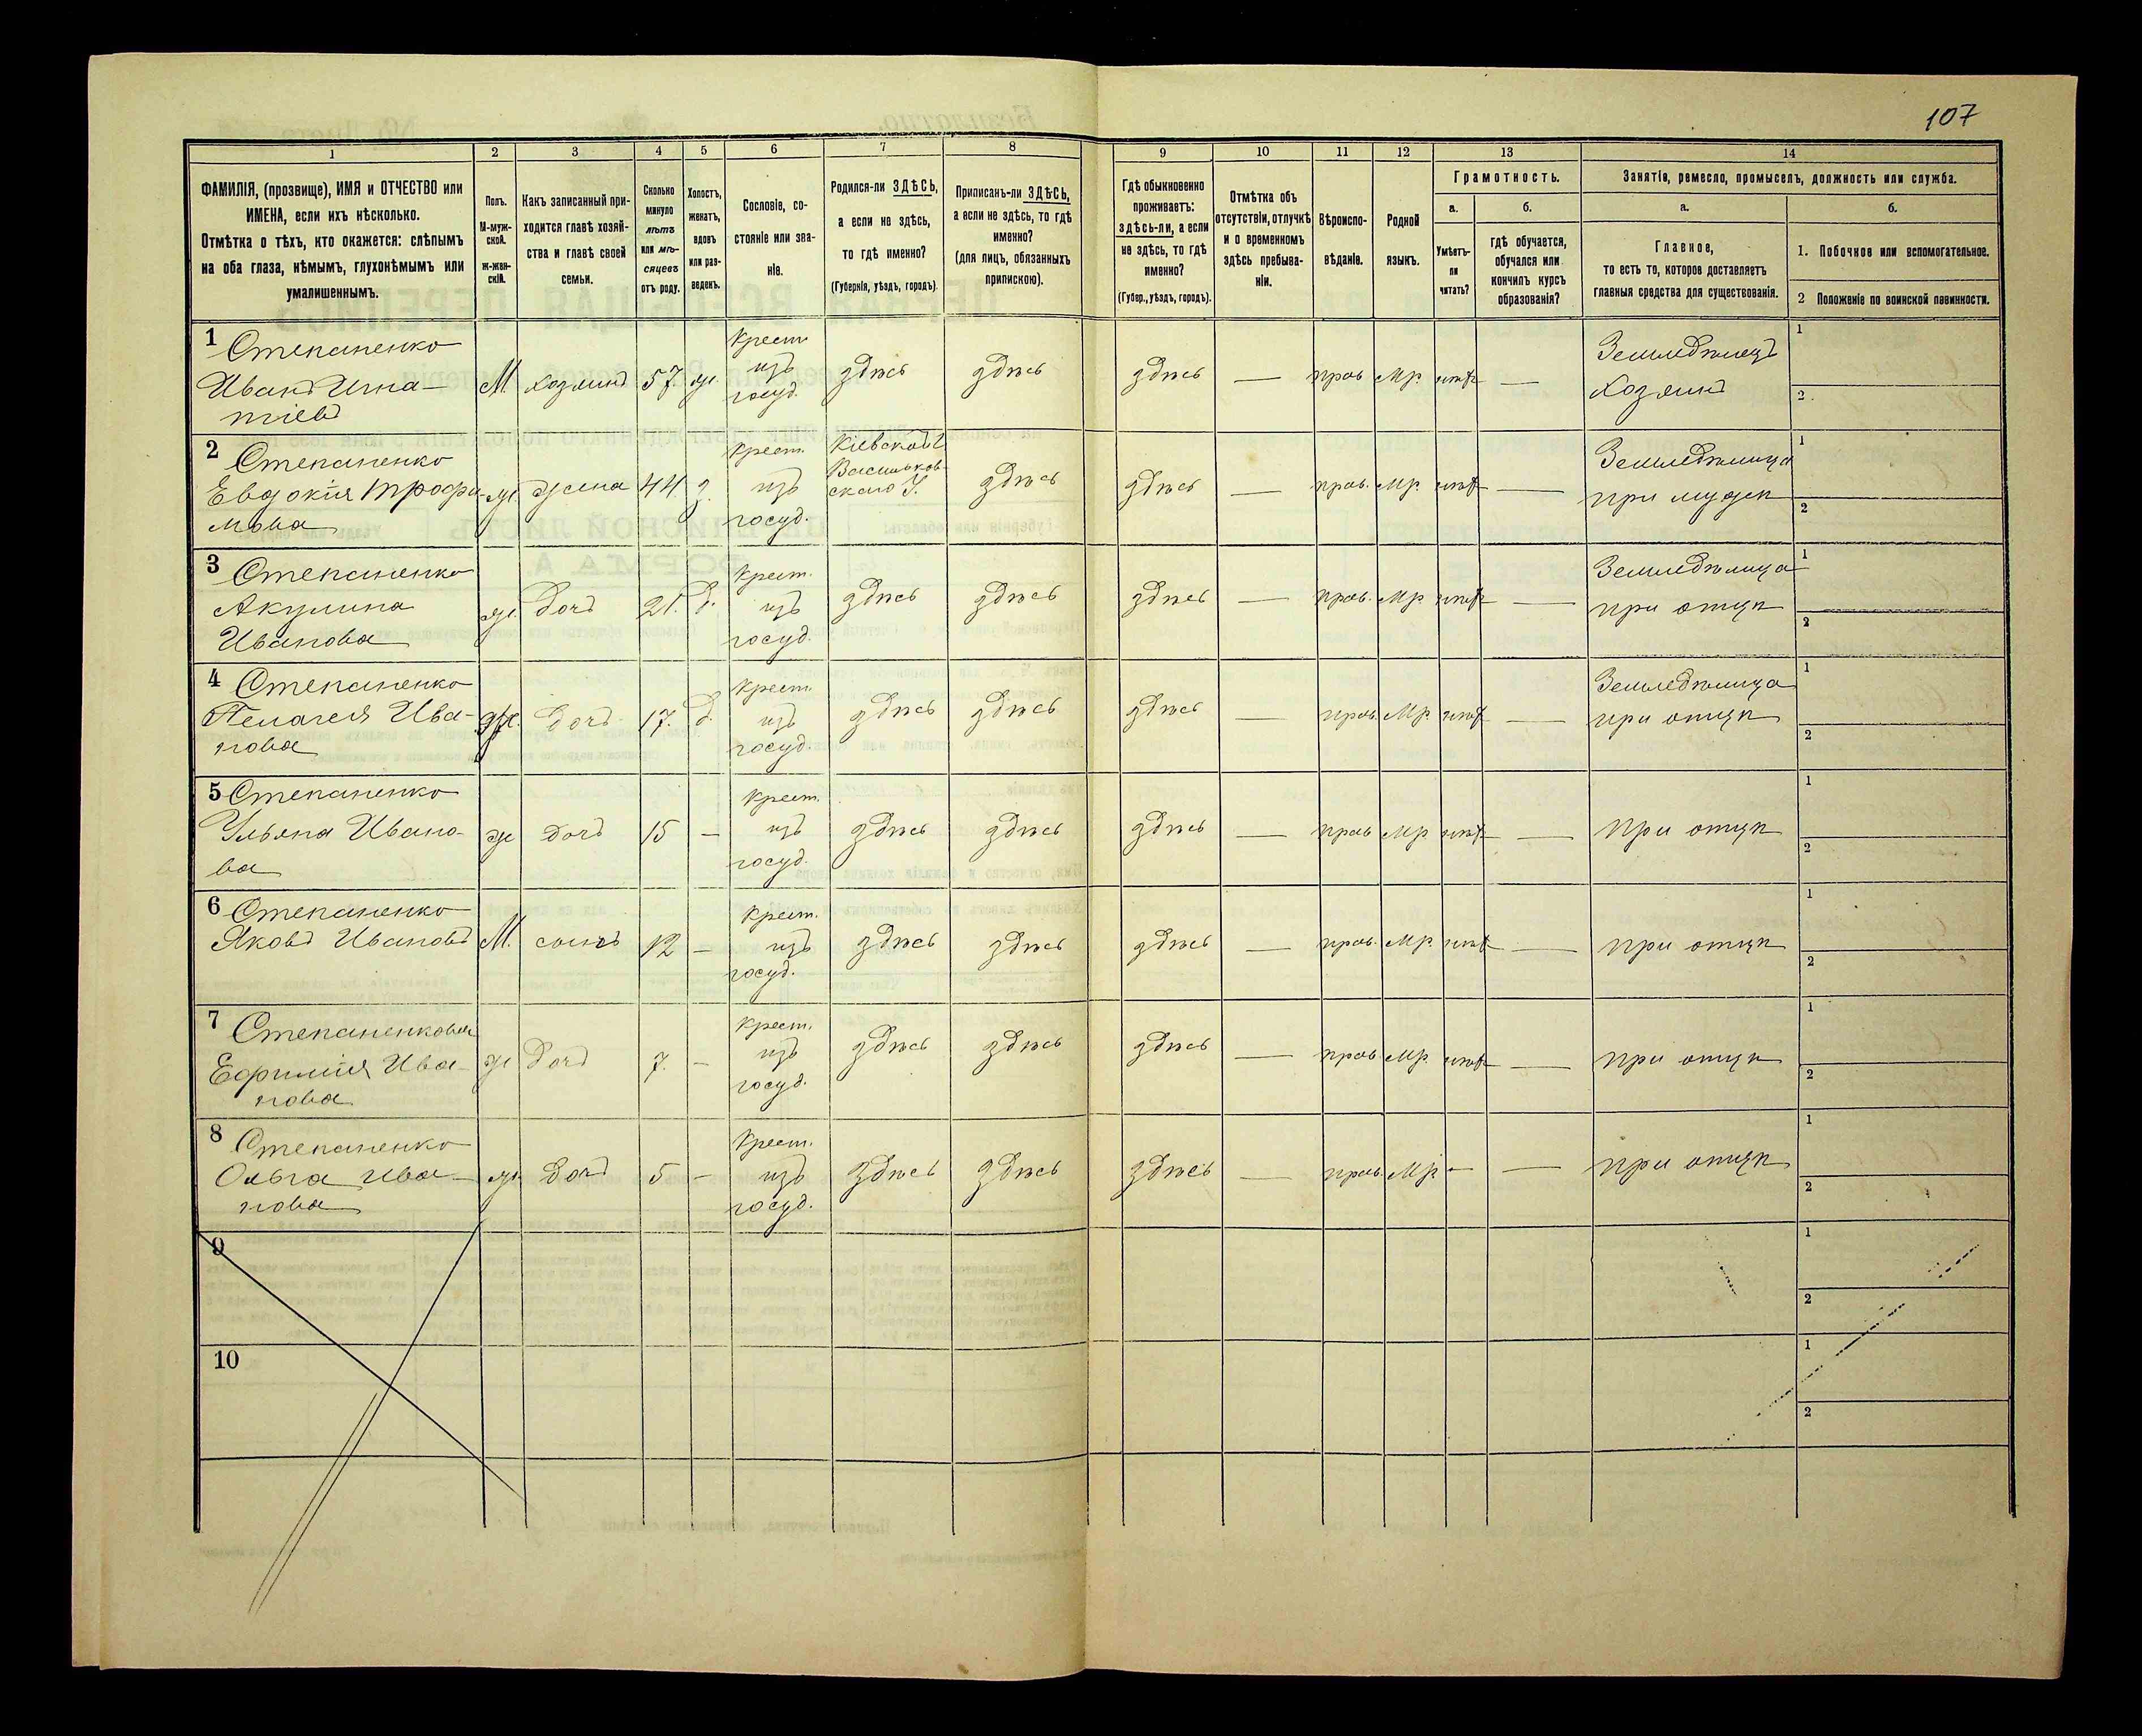 107
1 2 3 4 5 6 7 8 9 10 11 12 13 14
ФАМИЛІЯ, (прозвище), ИМЯ и ОТЧЕСТВО или
ИМЕНА, если ихъ нѣсколько.
Отмѣтка о тѣхъ, кто окажется: слѣпымъ
на оба глаза, нѣмымъ, глухонѣмымъ или
умалишеннымъ.
Полъ.
М-муж-
ской.
Ж-жен-
скій.
Какъ записанный при-
ходится главѣ хозяй-
ства и главѣ своей
семьи.
Сколько
минуло
лѣтъ
или мѣ-
сяцевъ
отъ роду.
Холостъ,
женатъ,
вдовъ
или раз-
веденъ.
Сословіе, со-
стояніе или зва-
ніе.
Родился-ли ЗДѢСЬ,
а если не здѣсь,
то гдѣ именно?
(Губернія, уѣздъ, городъ).
Приписанъ-ли ЗДѢСЬ,
а если не здѣсь, то гдѣ
именно?
(для лицъ, обязанныхъ
припискою).
Гдѣ обыкновенно
проживаетъ:
здѣсь-ли, а если
не здѣсь, то гдѣ
именно?
(Губер., уѣздъ, городъ).
Отмѣтка объ
отсутствіи, отлучкѣ
и о временномъ
здѣсь пребыва-
ніи.
Вѣроиспо-
вѣданіе.
Родной
языкъ.
Грамотность.
а.
Умѣетъ-
ли
читать?
б.
гдѣ обучается,
обучался или
кончилъ курсъ
образованія?
Занятіе, ремесло, промыселъ, должность или служба.
а.
Главное,
то есть то, которое доставляетъ
главныя средства для существованія.
б.
1. Побочное или вспомогательное.
2 Положеніе по воинской повинности.
1 Степаненко
Иванъ Игна-
тіевъ
М. хозяинъ 57. ж.
Крест.
изъ
госуд.
здѣсь здѣсь здѣсь — прав. Мр. нѣт —
Земледѣлецъ
Хозяинъ
1
2
2 Степаненко
Евдокія Трофи-
мова
ж. жена 44 з.
Крест.
изъ
госуд.
Кіевской Г.
Васильков-
скаго У.
здѣсь здѣсь — прав. Мр. нѣт —
Земледѣлица
при мужѣ
1
2
3 Степаненко
Акулина
Иванова
ж. дочь 21. д.
Крест.
изъ
госуд.
здѣсь здѣсь здѣсь — прав. Мр. нѣт —
Земледѣлица
при отцѣ
1
2
4 Степаненко
Пелагея Ива-
нова
ж. дочь 17. д.
Крест.
изъ
госуд.
здѣсь здѣсь здѣсь — прав. Мр. нѣт —
Земледѣлица
при отцѣ
1
2
5 Степаненко
Ульяна Ивано-
ва
ж дочь 15 —
Крест.
изъ
госуд.
здѣсь здѣсь здѣсь — прав Мр. нѣт —
при отцѣ
1
2
6 Степаненко
Яковъ Ивановъ
М. сынъ 12 —
Крест.
изъ
госуд.
здѣсь здѣсь здѣсь — прав. Мр. нѣт —
при отцѣ
1
2
7 Степаненкова
Ефимія Ива-
нова
ж дочь 7. —
Крест.
изъ
госуд.
здѣсь здѣсь здѣсь — прав Мр. нѣт —
при отцѣ
1
2
8 Степаненко
Ольга Ива-
нова
ж. дочь 5 —
Крест.
изъ
госуд.
здѣсь здѣсь здѣсь — прав. Мр. — —
при отцѣ
1
2
9
1
2
10
1
2